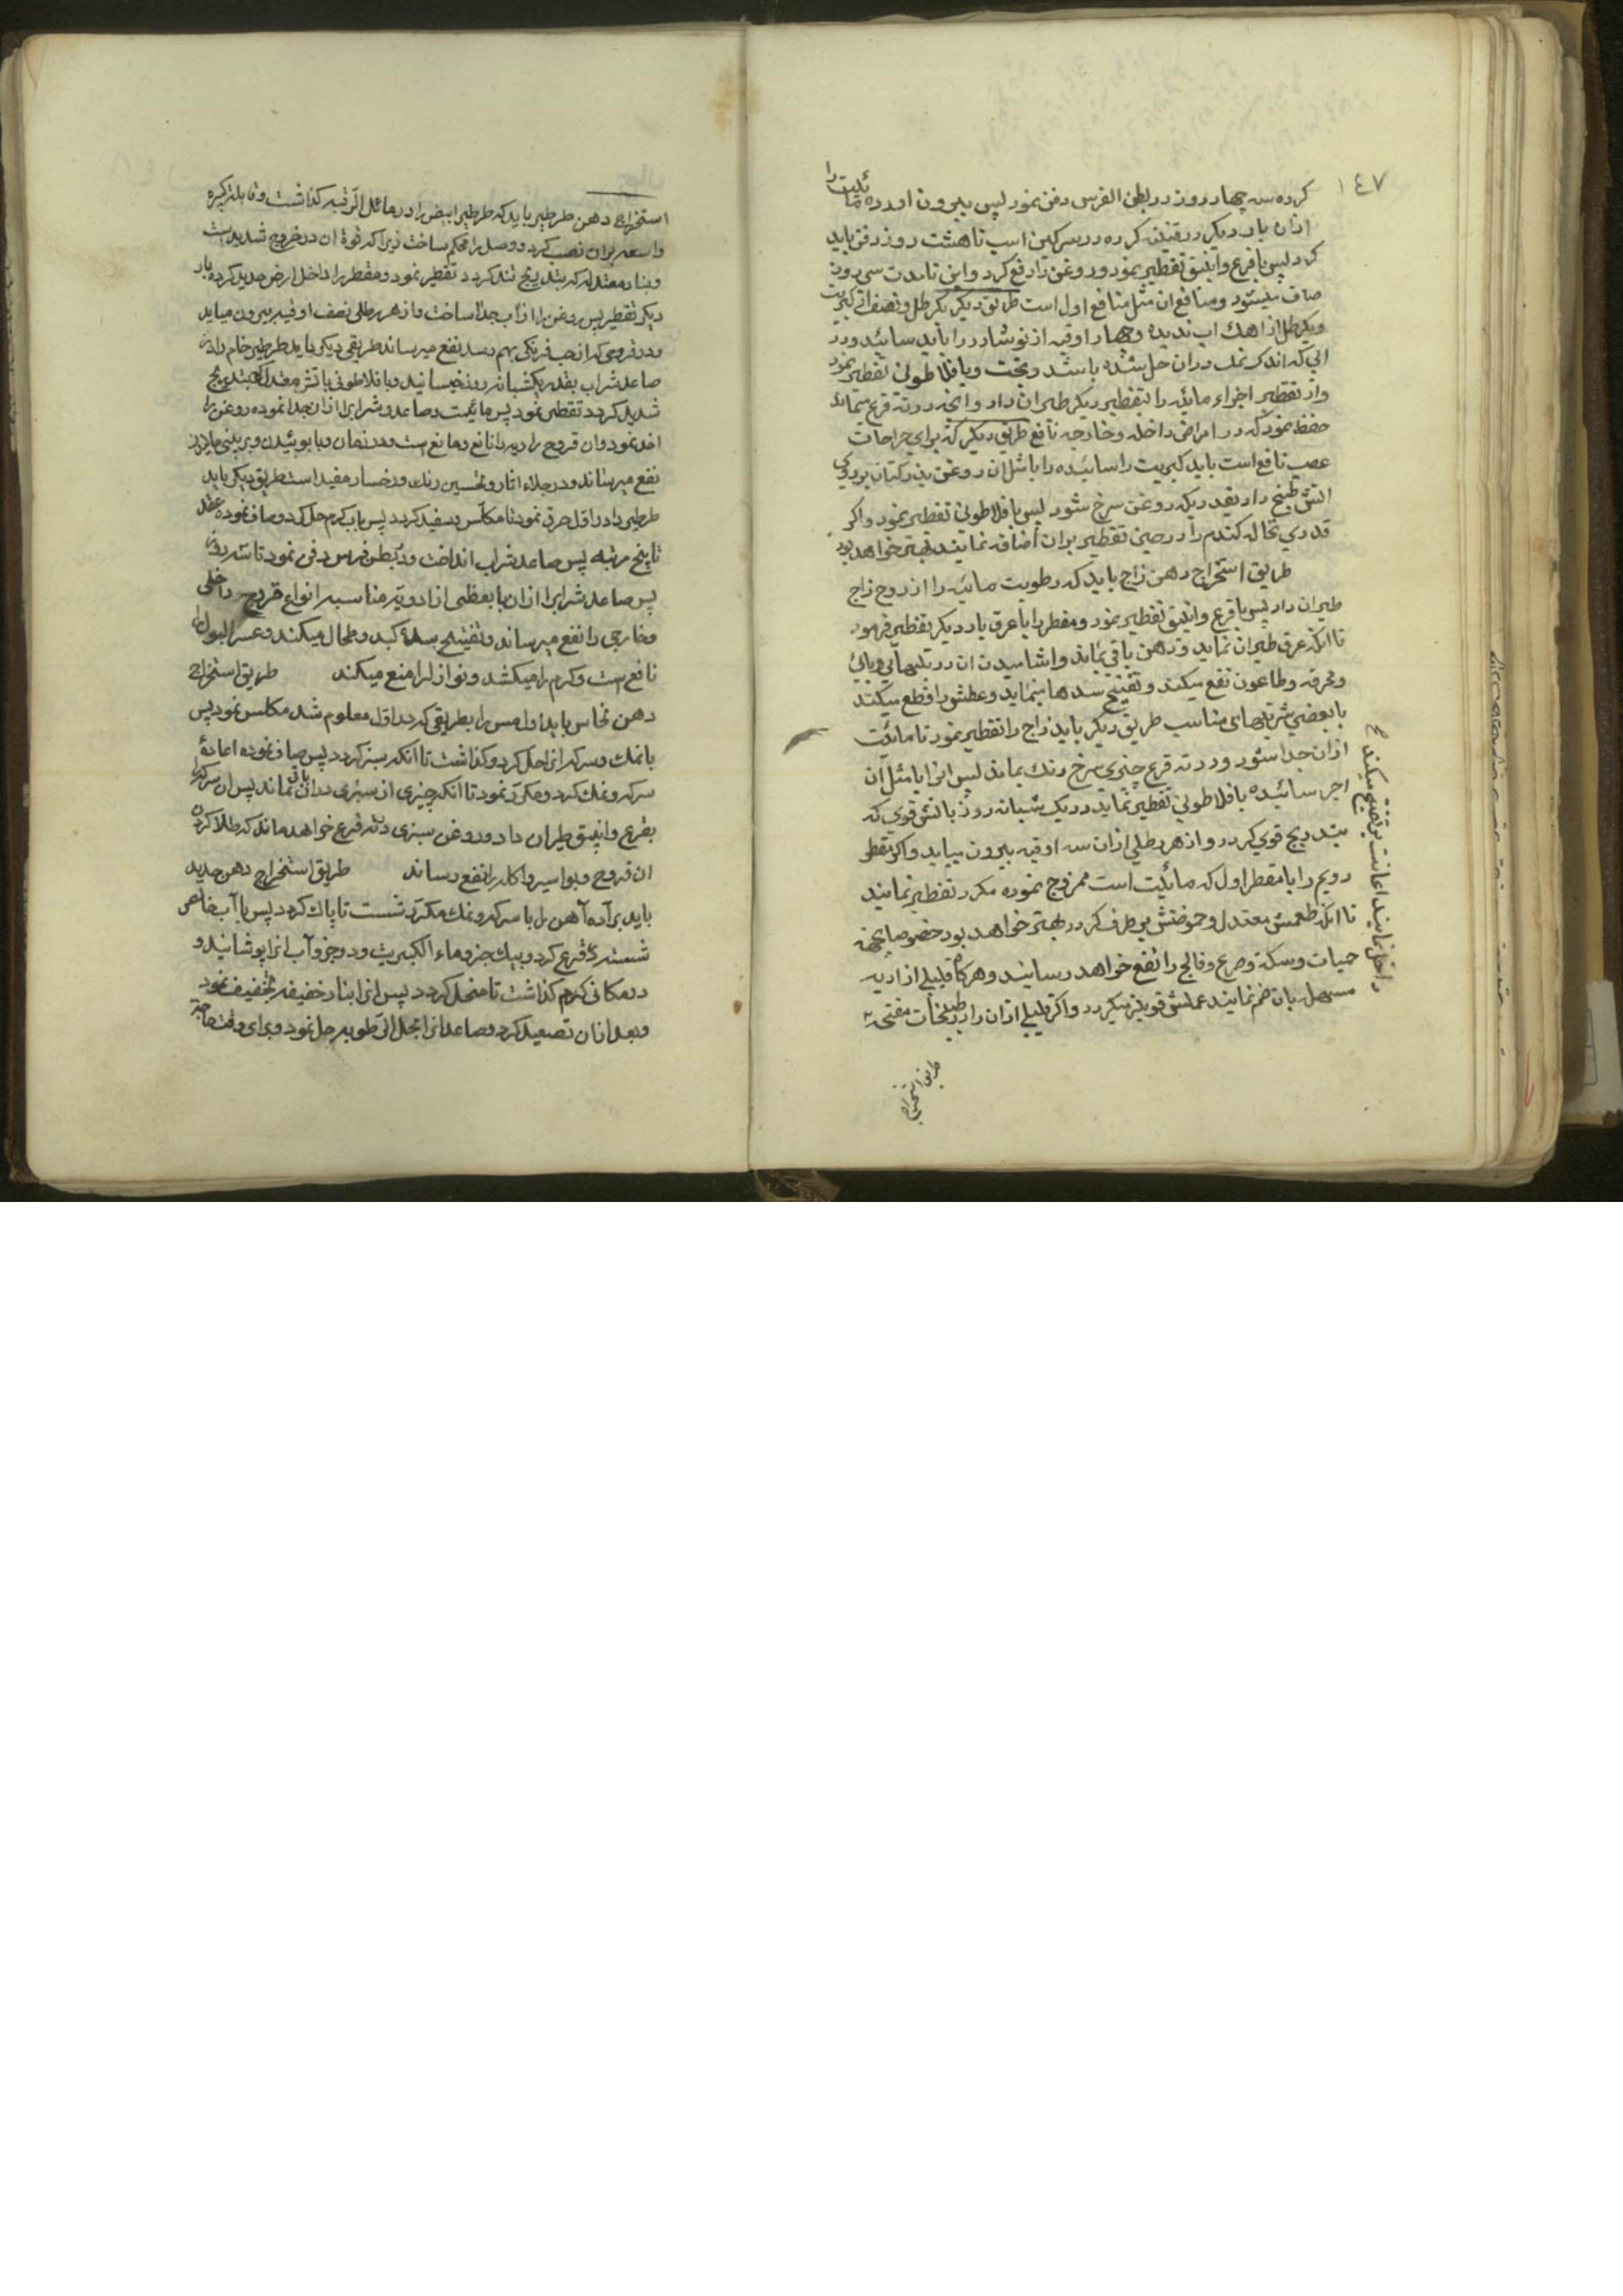 ١٤٧
کرده سه چهار روز در بطن الفرس دفن نمود پس بیرون اورده مائیت را
ازان بار دیکر در قنینه کرده در سرکین اسب تا هشت روز دفن باید
کرد پس با قرع و انبیق تقطیر نمود و روغن را رفع کرد و این تا مدت سی روز
صاف میشود و منافع ان مثل منافع اول است طریق دیکر یکرطل و نصف از کبریت
و یکرطل از اهك اب ندیده و چهار اوقیه از نوشادر را باید سائید و در
ابی که اندک نمك دران حل شده باشد و پخت و با فلاطونی تقطیر نمود
و از تقطیر اجزاء مائیه را بتقطیر دیکر طیران داد و انچه در ته قرع میماند
حفظ نمود که در امراض داخله و خارجه نافع طریق دیکر که برای جراحات
عصب نافع است باید کبریت را سائیده را با مثل ان روغن بذر کتان بر روی
اتش طبخ داد بقدریکه روغن سرخ شود پس با فلاطونی تقطیر نمود و اکر
قدری نخاله کندم را در حین تقطیر بران اضافه نمایند بهتر خواهد بود
طریق استخراج دهن زاج باید که رطوبت مائیه را از روح زاج
طیران داد پس با قرع و انبیق تقطیر نمود و مقطر را با عرق بار دیکر تقطیر فرمود
تا انکه عرق طیران نماید و دهن باقی بماند و اشامیدن ان در تبهای وبائی
و محرقه و طاعون نفع میکند و تفتیح سدها مینماید و عطش را قطع میکند
با بعضی شربتهای مناسب طریق دیکر باید زاج را تقطیر نمود تا مائیت
ازان جدا شود و در ته قرع چیزی سرخ رنك بماند پس انرا با مثل آن
اجر سائیده با فلاطونی تقطیر نماید در یك شبانه روز با اتش قوی که
بتدریج قوی کردد و از هر رطلی ازان سه اوقیه بیرون میاید و اکر مقطر
دویم را با مقطر اول که مائیت است ممزوج نموده مکرر تقطیر نمایند
تا انکه طعمش معتدل و حموضتش بر طرف کردد بهتر خواهد بود خصوصا بجهة
حیات و سکته و صرع و فالج را نفع خواهد رسانید و هرکاه قلیلی از ادویه
مسهل بان ضم نمایند عملش قویتر میکردد و اکر قلیلی ازان را در طبخات مفتحه
داخل نمایند اعانت بر تفتیح میکند
طریق استخراج
استخراج دهن طرطیر باید که طرطیر ابیض را در مائل الرقبه کذاشت و قابله کبیره
واسعه بران نصب کرد و وصل را محکم ساخت زیرا که قوة ان در خروج شدید است
و بنار معتدله که بتدریج تند کردد تقطیر نمود و مقطر را داخل ارض جدید کرده بار
دیکر تقطیر پس روغن را از آب جدا ساخت و از هر رطلی نصف اوقیه بیرون میاید
و در قروحی که از حب فرنکی بهم رسد نفع میرساند طریقی دیکر باید طرطیر خام را در
صاعد شراب بقدر یکشبانه روز خیسانید و با فلاطونی با تش معتدل که بتدریج
شدید کردد تقطیر نمود پس مائیت و صاعد و شراب را ازان جدا نموده روغن را
اخذ نمود و ان قروح ردیه را نافع و مانع است
نفع میرساند و در جلاء اثار و تحسین رنك و رخسار مفید است طریق دیکر باید
طرطیر را در اول حرق نمود تا مکلس و سفید کردد پس باب کرم حل کرد و صاف نموده عقد
تا پنج مرتبه پس صاعد شراب انداخت و در بطن فرس دفن نمود تا شد روز
پس صاعد شراب را ازان با بعضی از ادویه مناسبه انواع قروح داخلی
و خارجی را نفع میرساند و تفتیح سدۀ کبد و طحال میکند و عسر البول را
نافع است و کرم را میکشد و نوازل را منع میکند طریق استخراج
دهن نحاس باید اول مس را بطریقی که در اول معلوم شد مکلس نمود پس
با نمك و سرکه انرا حل کرد و کذاشت تا انکه سبز کردد پس صاف نموده اعادۀ
سرکه و نمك کرد و مکرر نمود تا انکه چیزی از سبزی دران باقی نماند پس ان سرکه را
بقرع و انبیق طیران داد و روغن سبزی در ته قرع خواهد ماند که طلا کردن
ان قروح و بواسیر و اکله را نفع رساند طریق استخراج دهن حدید
باید برادۀ آهن را با سرکه و نمك مکرر شست تا پاك کردد پس با آب خالص
شسته در قرع کرد و بیك جزو ماء الکبریت و دو جزو آب انرا پوشانید و
در مکانی کرم کذاشت تا منحل کردد پس انرا بنار خفیفه تخفیف نمود
و بعد ازان تصعید کرد و صاعد انرا بمحل الرطوبه حل نمود و برای وقت حاجة